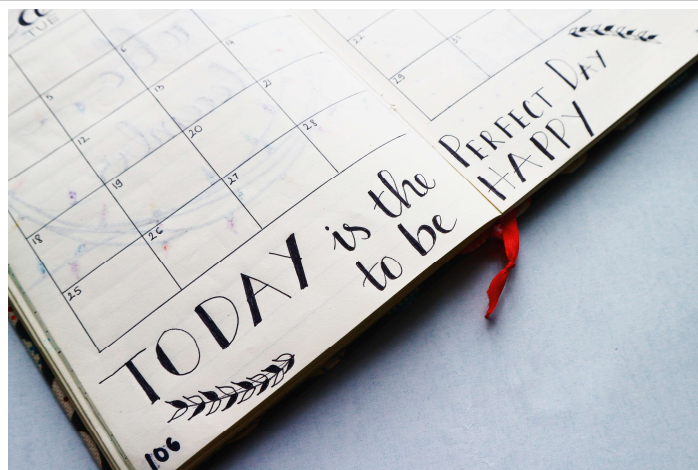 TUE
5 6 14
12 13 21
18 19 20 28
25 26 27
22
29
TODAY is the PERFECT DAY
to be HAPPY
106